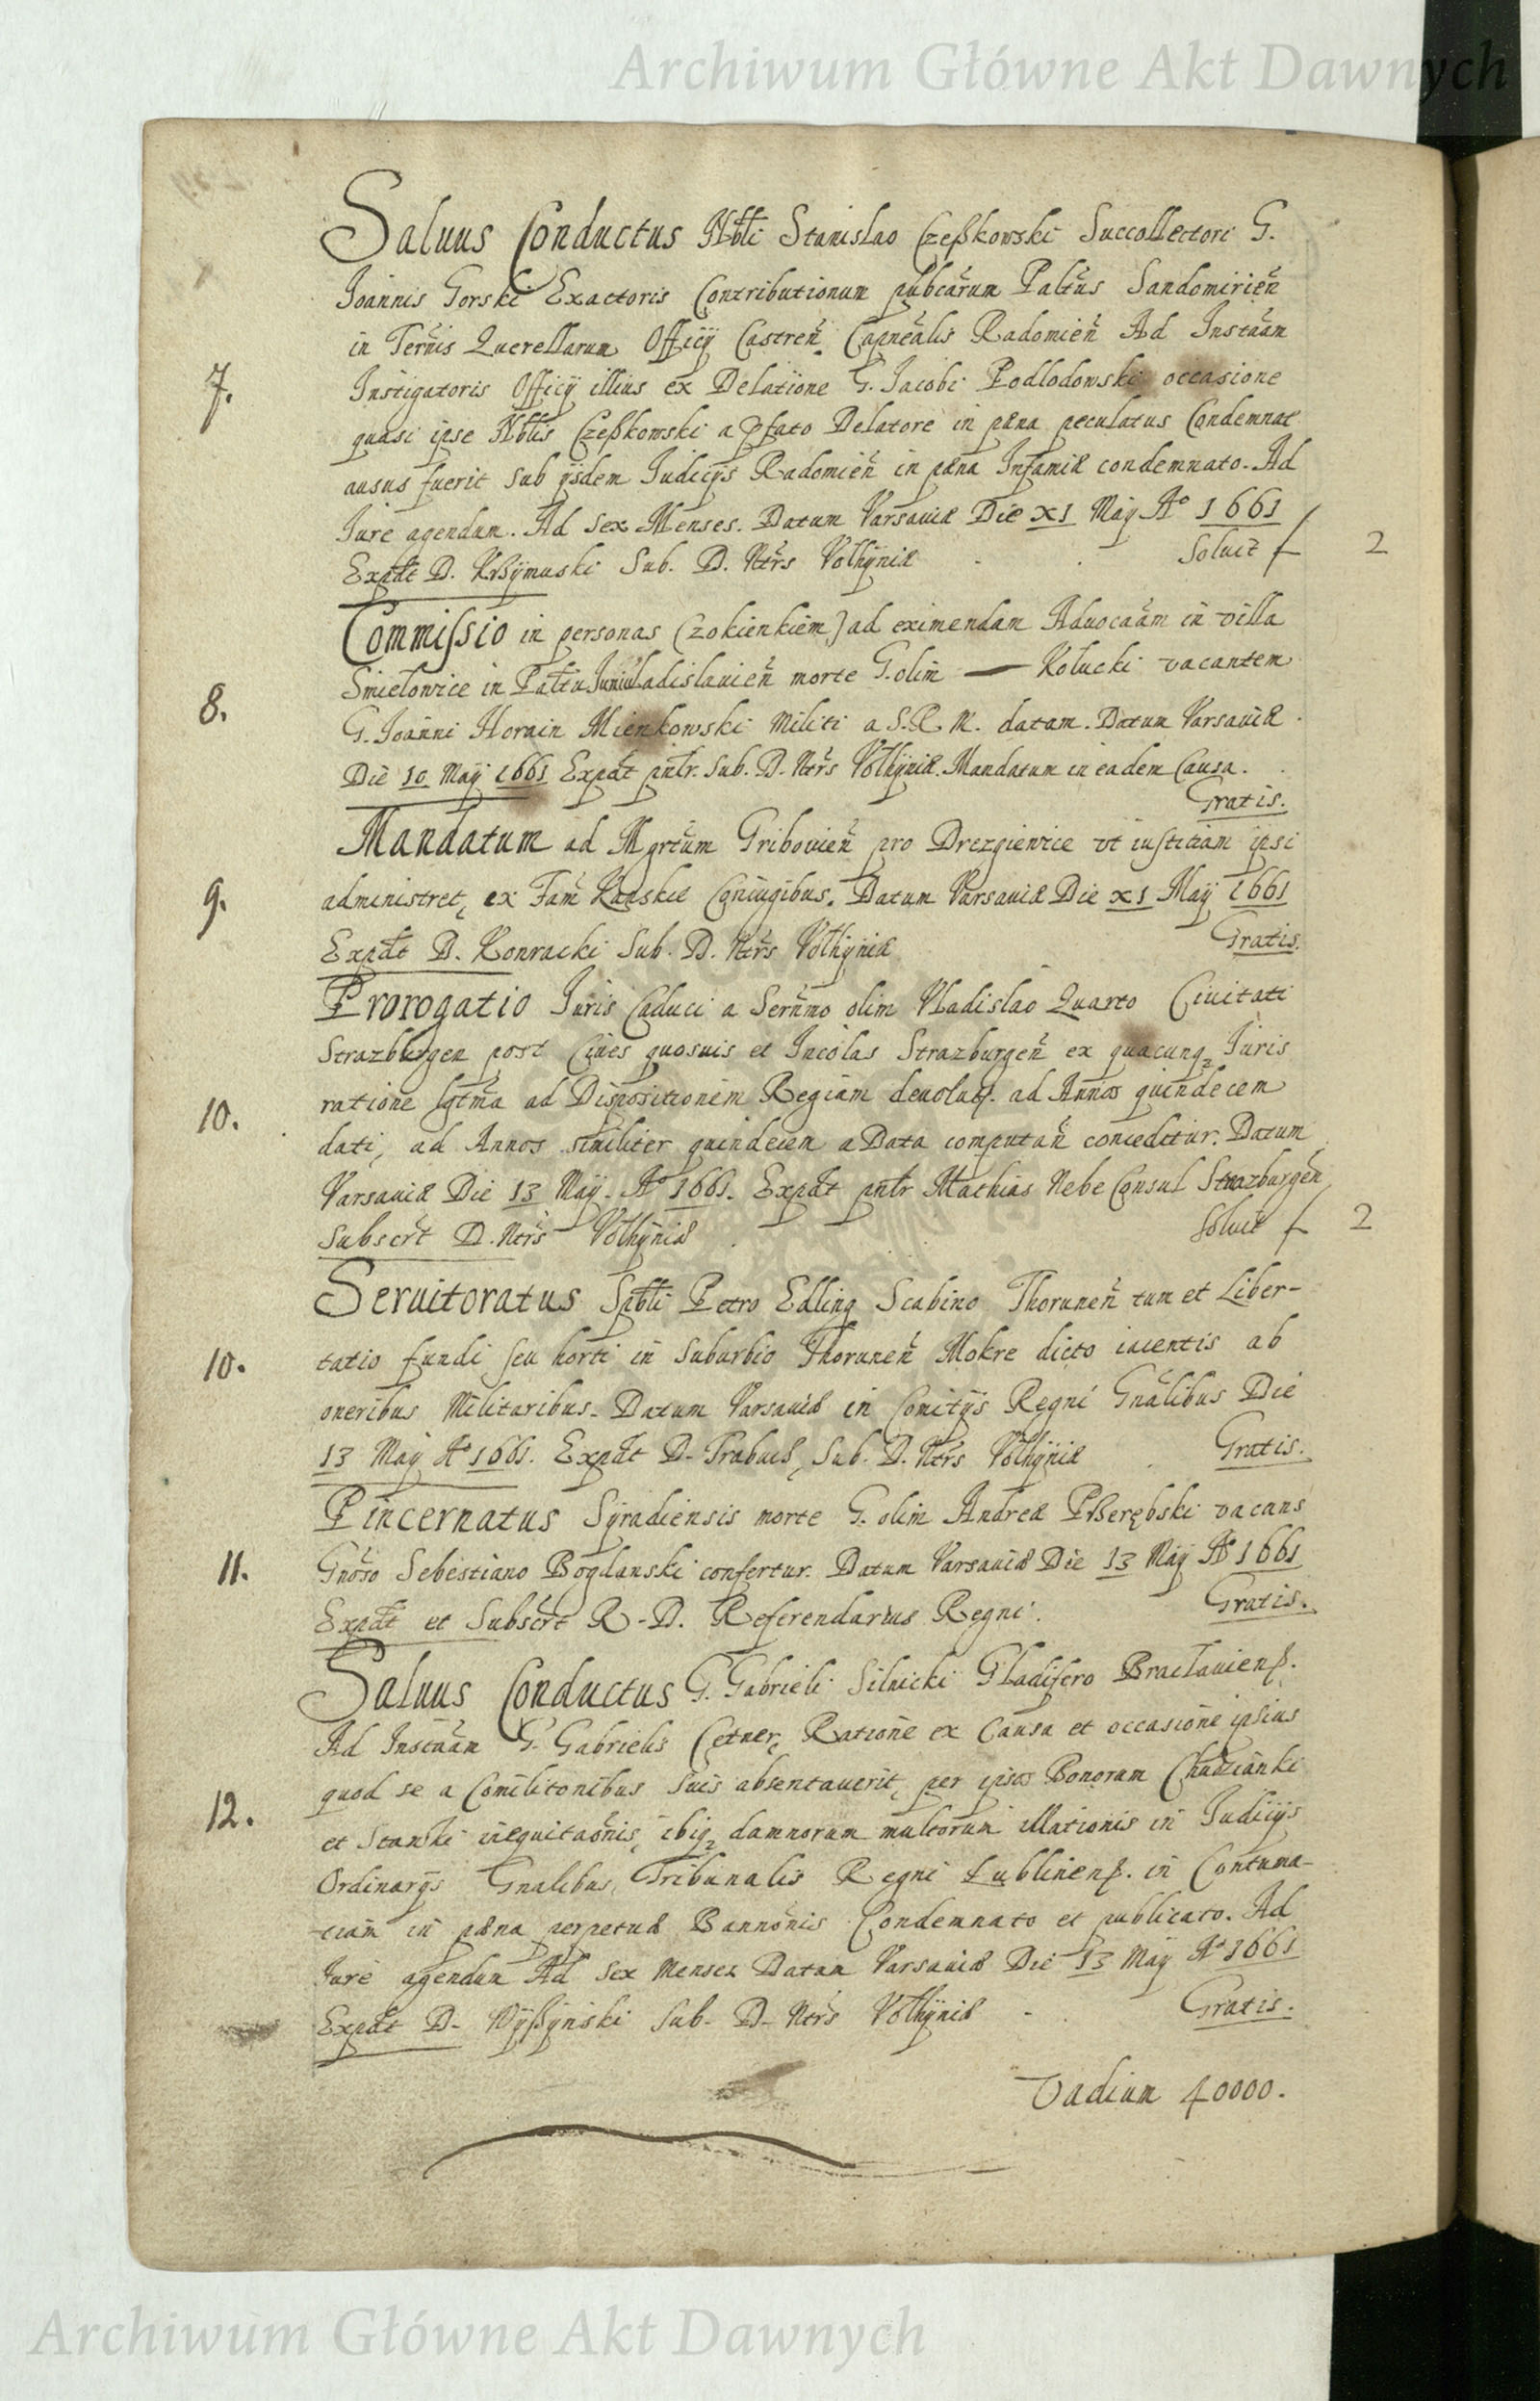 Archiwum Główne Akt Dawnych
Saluus Conductus Nbli Stanislao Czeßkowski Succollectori G.
Joannis Gorski Exactoris Contributionum pubcarum Paltus Sandomirien
7.
in Termis Querellarum Officij Castren Capnealis Radomien Ad Instaam
Instigatoris Officij illius ex Delatione G. Jacobi Podlodowski occasione
quasi ipse Nblis Czeßkowski a pfato Delatore in pæna peculatus Condemnat
ausus fuerit sub ijsdem Judicijs Radomien in pæna Infamiæ condemnato. Ad
Jure agendum. Ad sex Menses. Datum Varsauiæ Die XI Maij Ao 1661
Expdt D. Sub. D. Ntrs Volhyniæ Soluit f 2
Commissio in personas (zokienkiem) ad eximendam Aduocaam in villa
8.
Smielowice in Paltu Juniuladislauien morte G. olim — Kolucki vacantem
G. Joanni Horain Mienkowski Militi a S. R. M. datam. Datum Varsauiæ
Die 10 Maij 1661 Expdt pntr. Sub. D. Ntrs Volhyniæ. Mandatum in eadem Causa.
Gratis.
Mandatum ad Mgrtum Gribouien pro Drezgiewice vt iustitiam ipsi
9.
administret, ex Fam Kanskie Coniugibus. Datum Varsauiæ Die XI Maij 1661
Expdt D. Konracki Sub. D. Ntrs Volhyniæ Gratis.
Prorogatio Juris Caduci a Sernmo olim Vladislao Quarto Ciuitati
Strazburgen post Ciues quosuis et Incolas Strazburgen ex quacunq Juris
10.
ratione lgtma ad Dispositionem Regiam deuolut. ad Annos quindecem
dati, ad Annos similiter quindecem a Data computan conceditur. Datum
Varsauiæ Die 13 Maij. Ao 1661. Expdt pntr Mathias Nebe Consul Strazburgen
Subscrt D. Ntrs Volhyniæ Soluit f 2
Seruitoratus Spbli Petro Edling Scabino Thorunen tum et Liber-
10.
tatio fundi seu horti in Suburbio Thorunen Mokre dicto iacentis ab
oneribus Militaribus. Datum Varsauiæ in Comitijs Regni Gnalibus Die
13 Maij Ao 1661. Expdt D. Sub. D. Ntrs Volhyniæ Gratis.
Pincernatus Syradiensis morte G. olim Andreæ Pßerębski vacans
11.
Gnoso Sebestiano Bogdanski confertur. Datum Varsauiæ Die 13 Maij Ao 1661
Expdt et Subscrt R. D. Referendarius Regni. Gratis.
Saluus Conductus G. Gabrieli Silnicki Gladifero Braclauiens.
Ad Instaam G. Gabrielis Cetner, Ratione ex Causa et occasione ipsius
quod se a Comilitonibus suis absentauerit, per ipsos Bonorum Chudzianki
12.
et Stanki inequitaonis, ibiq damnorum multorum illationis in Judicijs
Ordinarijs Gnalibus, Tribunalis Regni Lubliniens. in Contuma-
ciam in pæna perpetuæ Bannonis Condemnato et publicato. Ad
Jure agendum Ad sex Menses Datum Varsauiæ Die 13 Maij Ao 1661
Expdt D. Wyßynski Sub. D. Ntrs Volhyniæ Gratis.
Vadium 40000.
Archiwum Główne Akt Dawnych